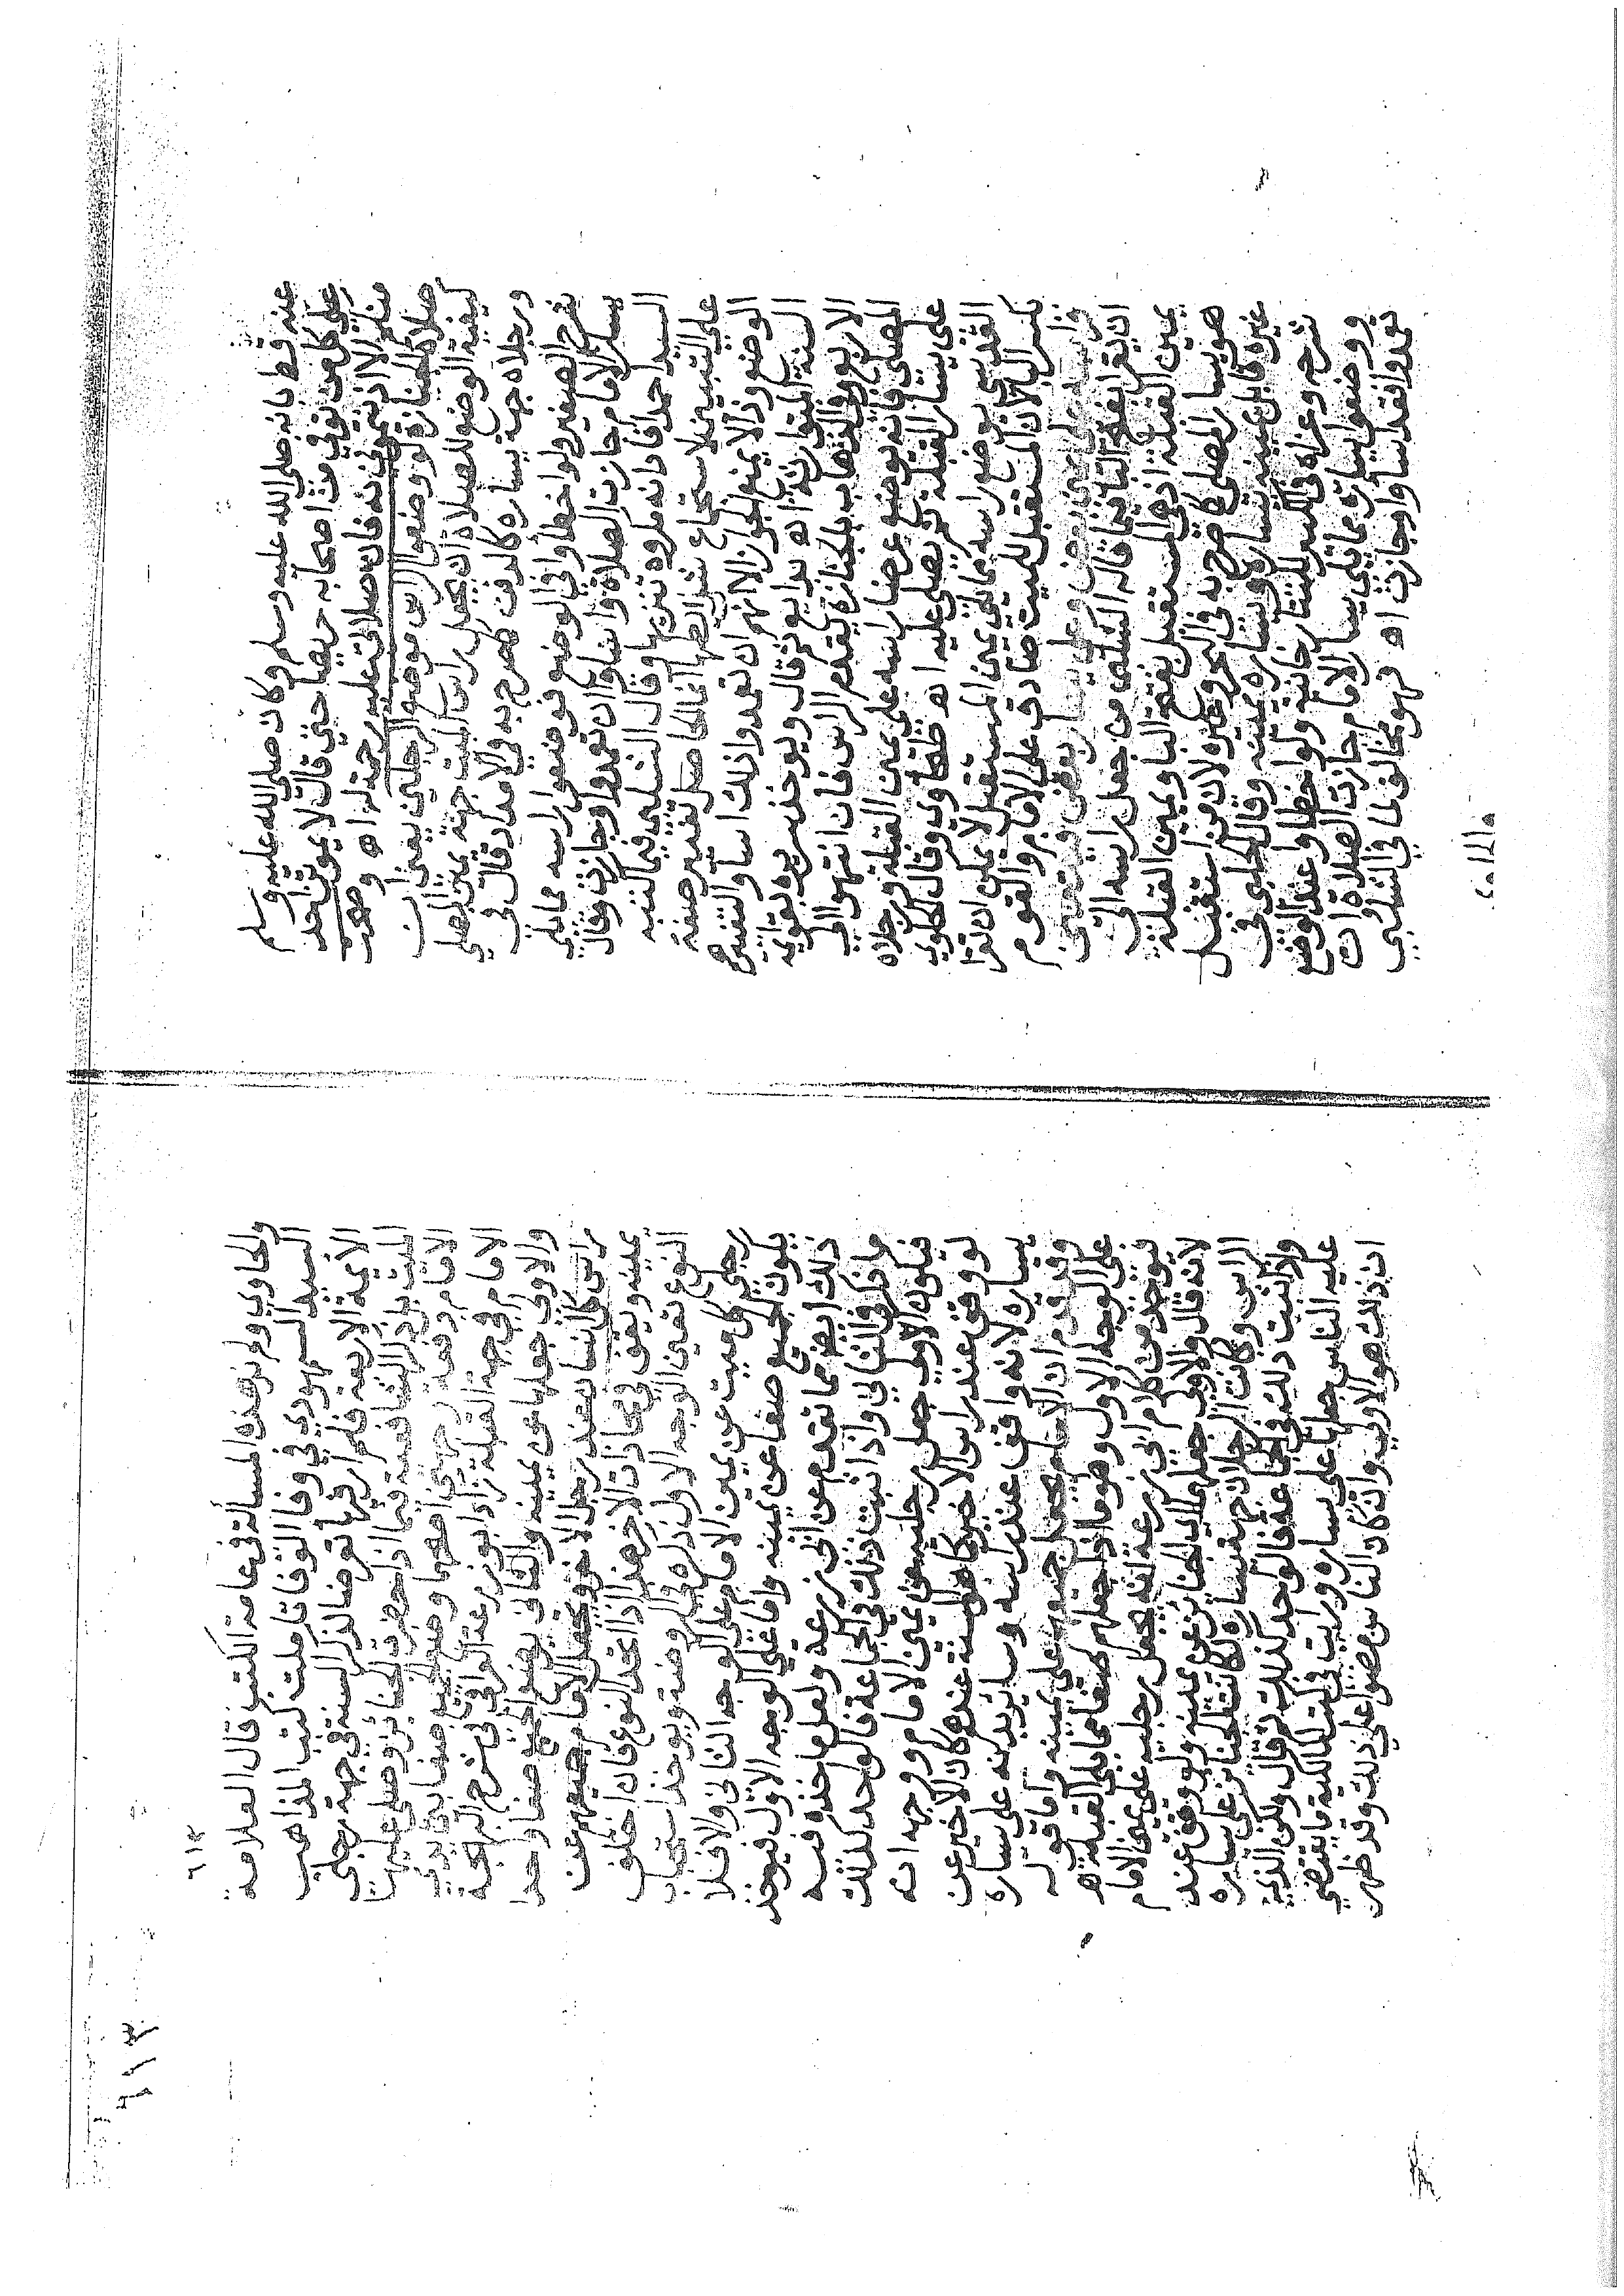 عنه قط بانه صلى الله عليه وسلم وكان صلى الله عليه وسلم
على كل من توفي من اصحابه حريصا حتى قال لا يموتن احد
منكم الا اذنتموني به فان صلاتي عليه رحمة له اه وصحت
صلاة الجنازة لو وضعوا الراس موضع الرجلين يعني ان
كيفية الوضع للصلاة ان يجعل راس الميت جهة يمين المصلي
ورجلاه جهة يساره كالدفن صرح به في الامداد قال في
الصغير ولو اخطأوا في الوضع فوضعوا راسه مما يلي
يسار الامام جازت الصلاة واساؤا ان تعمدوا وجازت وقال
السيد احمد افاد انه مكروه تنزيها وقال الشلبي فيما كتبه
على التبيين لاستجماع شرائطها انما الحاصل تغيير صفة
الوضع وذا لا يمنع الجواز الا انهم ان تعمدوا ذلك اساؤا لتغييرهم
السنة المتوارثة اه بدايع ثم قال ويوخذ سريره بقوايمه
الاربع والذهاب بالجنازة يقدم الراس فان انتهوا الى
المصلى فانه يوضع عرضا راسه على يمين القبلة ورجلاه
على يسار القبلة ثم يصلى عليه اه طحطاوي وقال الحاوي
القدسي يوضع راسه مما يلي يمين المستقبل لا يمكن ان تقرا
بكسر الباء لان المستقبل للميت صادق على الامام والقوم
ان يقرا بفتح الباء فيما قاله الشلبي من جعل راسه الى
يمين القبلة اذ هي المستقبل بفتح الباء ويمين القبلة
هو يسار المصلي كما صرح به في البحر وغيره لان من استقبل
غيره قابل يمينه يساره ويساره يمينه وقال الحلبي في
شرحه وعزاه في الكبير للتتارخانية ولو اخطاوا عند الوضع
ووضعوا يساره مما يلي يسار الامام جازت الصلاة وان
تعمدوا فقد اساؤا وجازت اه فهو مخالف لما في الشلبي
والحاوي
والحاوي ولم نر هذه المسألة في عامة الكتب قال العلامة
السيد السمهودي في وفا الوفا تاملت كتب المذاهب
الايمة الاربعة فلم ار فيها تعرضا لذكر السنة في جهة رجلي
الميت الشافعية فيما اذا حضرت الجنائز وصلى عليها
الامام دفعة وجهين اصحهما وضع الجميع صفا بين يدي
الامام في جهة القبلة زاد ابو زرعة العراقي في شرح البهجة
والاولى جعلها عن يمينه والثاني يوضع الجميع صفا واحدا
راس كل انسان عند رجل الاخر ويجعل الامام جميعهم عن
يمينه ويقف في محاذات الاخر هذا اذا اتحد النوع فان اختلف
النوع تعين الوجه الاول ذكره في الروضة ويوخذ استحباب
رجلي كل ميت عن يمين الامام على الوجه الثاني والا فلا
يكون الجميع صفا عن يمينه واما على الوجه الاول فيوخذ
ذلك ايضا مما تقدم عن ابي زرعة ولعل ما اخذه فيه
ما ذكر في الثاني واذا ثبت ذلك في الجماعة فالواحد كذلك
فيكون الاولى جعل رجليه عن يمين الامام ووجهه انه
لو وقف عند راس الاخير كما هو السنة عنده كان الاخير عن
يساره لانه واقف عند راسه وسائر بدنه على يساره
وقد قدم ان الامام يجعل جميعهم على يمينه واما قوله
على الوجه الاول وهو ما اذا جعلهم صفا مما يلي القبلة اه
فيوخذ من كلام ابي زرعة انه يجعل رجليه على يمين الامام
لانه قال والاولى جعلها اي الجنائز عن يمينه ولو وقف عند
الراس وكانت الرجلان جهة يساره لكانت الجنائز على يساره
واذا ثبت ذلك في الجماعة فالواحد كذلك ثم قال ولكن الذي
عليه الناس جعلها على يساره ورايت في كتب المالكية ما يقتضي
ان ذلك هو الاولى وان كان الناس مضوا على ذلك وقد ظهر